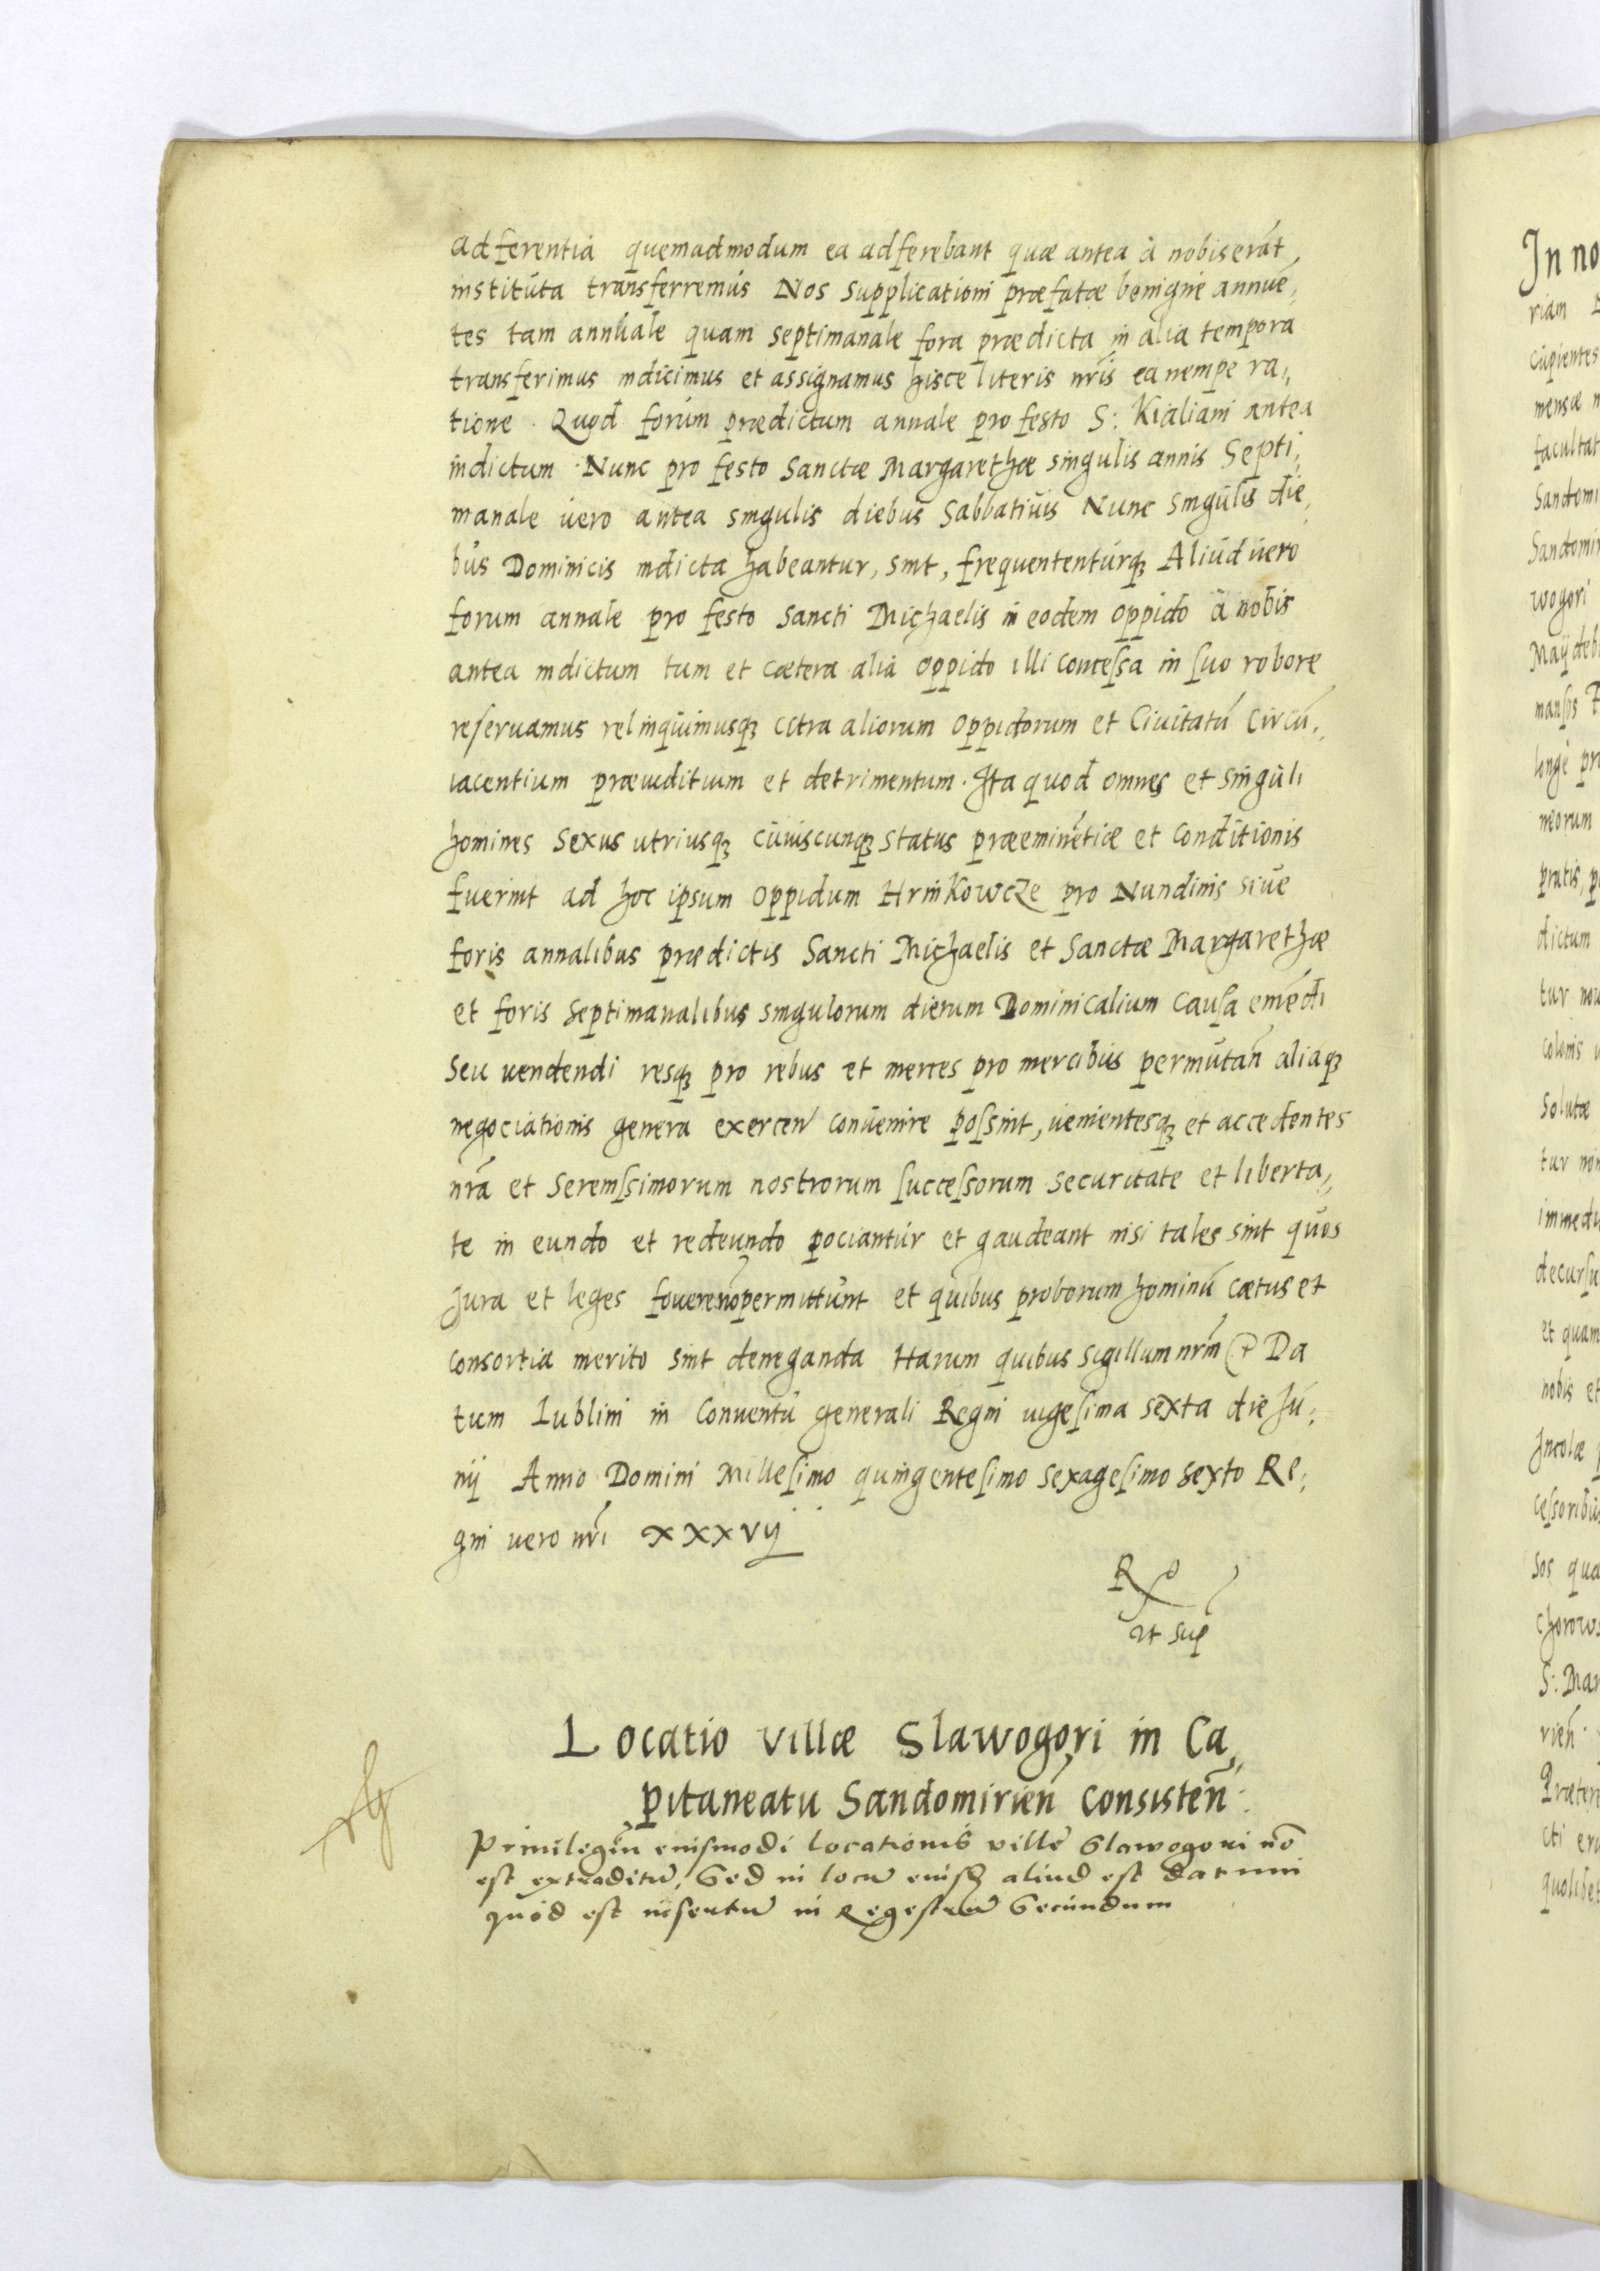 adferentia quemadmodum ea adferebant quæ antea à nobis erāt
instituta transferremus Nos supplicationi præfatæ benigne annuē,,
tes tam annuale quam septimanale fora prædicta in alia tempora
transferimus indicimus et assignamus hisce literis nr̃is ea nempe ra,,
tione. Quod forum prædictum annale pro festo S: Kialiani antea
indictum. Nunc pro festo Sanctæ Margarethæ singulis annis Septi,,
manale uero antea singulis diebus Sabbatiuis Nunc singulis die,,
bus Dominicis indicta habeantur, sint, frequententurqȝ Aliud uero
forum annale pro festo Sancti Michaelis in eodem oppido à nobis
antea indictum tum et cætera alia oppido illi concessa in suo robore
reseruamus relinquimusqȝ citra aliorum oppidorum et Ciuitatū Circū,,
iacentium præiuditium et detrimentum. Ita quod omnes et singuli
homines sexus utriusqȝ cuiuscunqȝ status præeminētiæ et conditionis
fuerint ad hoc ipsum oppidum Hrinkowcze pro Nundinis siue
foris annalibus prædictis Sancti Michaelis et Sanctæ Margarethæ
et foris septimanalibus singulorum dierum Dominicalium causa emēdi
seu uendendi resqȝ pro rebus et merces pro mercibus permutañ aliaqȝ
negociationis genera exercen̄ conuenire possint, uenientesqȝ et accedentes
nr̃a et Serenissimorum nostrorum successorum securitate et liberta,,
te in eundo et redeundo pociantur et gaudeant nisi tales sint quos
Jura et leges fouere nō permittunt et quibus proborum hominū cætus et
consortia merito sint deneganda Harum quibus sigillum nr̃m Da
tum Lublini in Conuentu generali Regni uigesima sexta die Ju,,
nij Anno Domini Millesimo quingentesimo sexagesimo sexto Re,,
gni uero nr̃i xxxvij
Rº
ut sup
Locatio villæ Slawogori in Ca,,
pitaneatu Sandomirieñ consisteñ
Priuilegiū eiusmodi locationis ville Slawogori nō
est extraditū, Sed in locū eiusȝ aliud est datum
quod est insertū in Regestrū Secundum
In no
riam
cupientes
mensæ
facultat
Sandomi
Sandomir
wogori
Maydeb
mansis
longe pr
niorum
pratis, p
dictum
tur nou
colonis
solutæ
tur
immedi
decursu
et quam
nobis et
Incolæ
cessoribus
sos qua
chorows
S: Mar
rieñ.
Præter
cti eru
quolibet